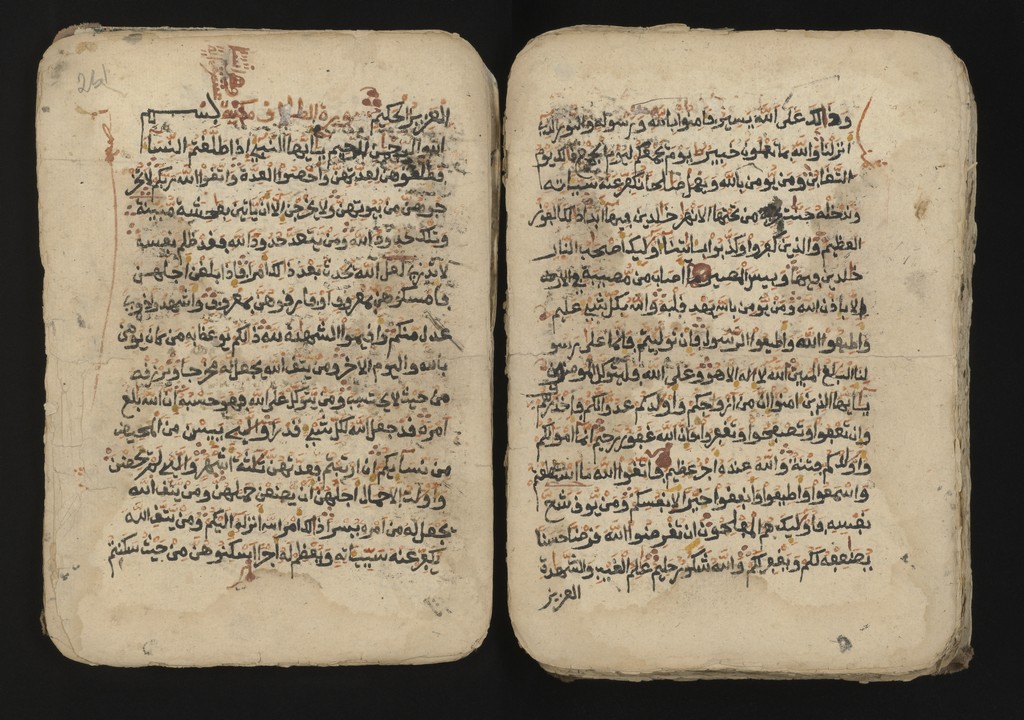 وذالك على الله يسير فامنوا بالله ورسوله والنور الذى
انزلنا والله بما تعملون خبير يوم يجمعكم ليوم الجمع ذالك يوم
التغابن ومن يومن بالله ويعمل صالحا نكفر عنه سيئاته
وندخله جنت تجرى من تحتها الانهر خالدين فيها ابدا ذالك الفوز
العظيم والذين كفروا وكذبوا بايتنا اوليك اصحب النار
خالدين فيها وبيس المصير ما اصاب من مصيبة فى الارض
الا باذن الله ومن يومن بالله يهد قلبه والله بكل شيء عليم
واطيعوا الله واطيعوا الرسول فان توليتم فانما على رسو
لنا البلغ المبين الله لا اله الا هو وعلى الله فليتوكل المومنون
يايها الذين امنوا ان من ازوجكم واولدكم عدوا لكم فاحذروهم
وان تعفوا وتصفحوا وتغفروا فان الله غفور رحيم انما اموالكم
واولدكم فتنة والله عنده اجر عظيم فاتقوا الله ما استطعتم
واسمعوا واطيعوا وانفقوا خيرا لانفسكم ومن يوق شح
نفسه فاوليك هم المفلحون ان تقرضوا الله قرضا حسنا
يضعفه لكم ويغفر لكم والله شكور حليم علم الغيب والشهدة
العزيز
261
العزيز الحكيم سورة الطلاق مدنية بسم
الله الرحمن الرحيم يايها النبى اذا طلقتم النساء
فطلقوهن لعدتهن واحصوا العدة واتقوا الله ربكم لا تخر
جوهن من بيوتهن ولا يخرجن الا ان ياتين بفحشة مبينة
وتلك حدود الله ومن يتعد حدود الله فقد ظلم نفسه
لا تدرى لعل الله يحدث بعد ذالك امرا فاذا بلغن اجلهن
فامسكوهن بمعروف او فارقوهن بمعروف واشهدوا ذوى
عدل منكم واقيموا الشهدة لله ذالكم يوعظ به من كان يومن
بالله واليوم الاخر ومن يتق الله يجعل له مخرجا ويرزقه
من حيث لا يحتسب ومن يتوكل على الله فهو حسبه ان الله بلغ
امره قد جعل الله لكل شيء قدرا والى يبسن من المحيض
من نسايكم ان ارتبتم فعدتهن ثلثة اشهر والى لم يحضن
واولت الاحمال اجلهن ان يضعن حملهن ومن يتق الله
يجعل له من امره يسرا ذالك امر الله انزله اليكم ومن يتق الله
يكفر عنه سيئاته ويعظم له اجرا اسكنوهن من حيث سكنتم